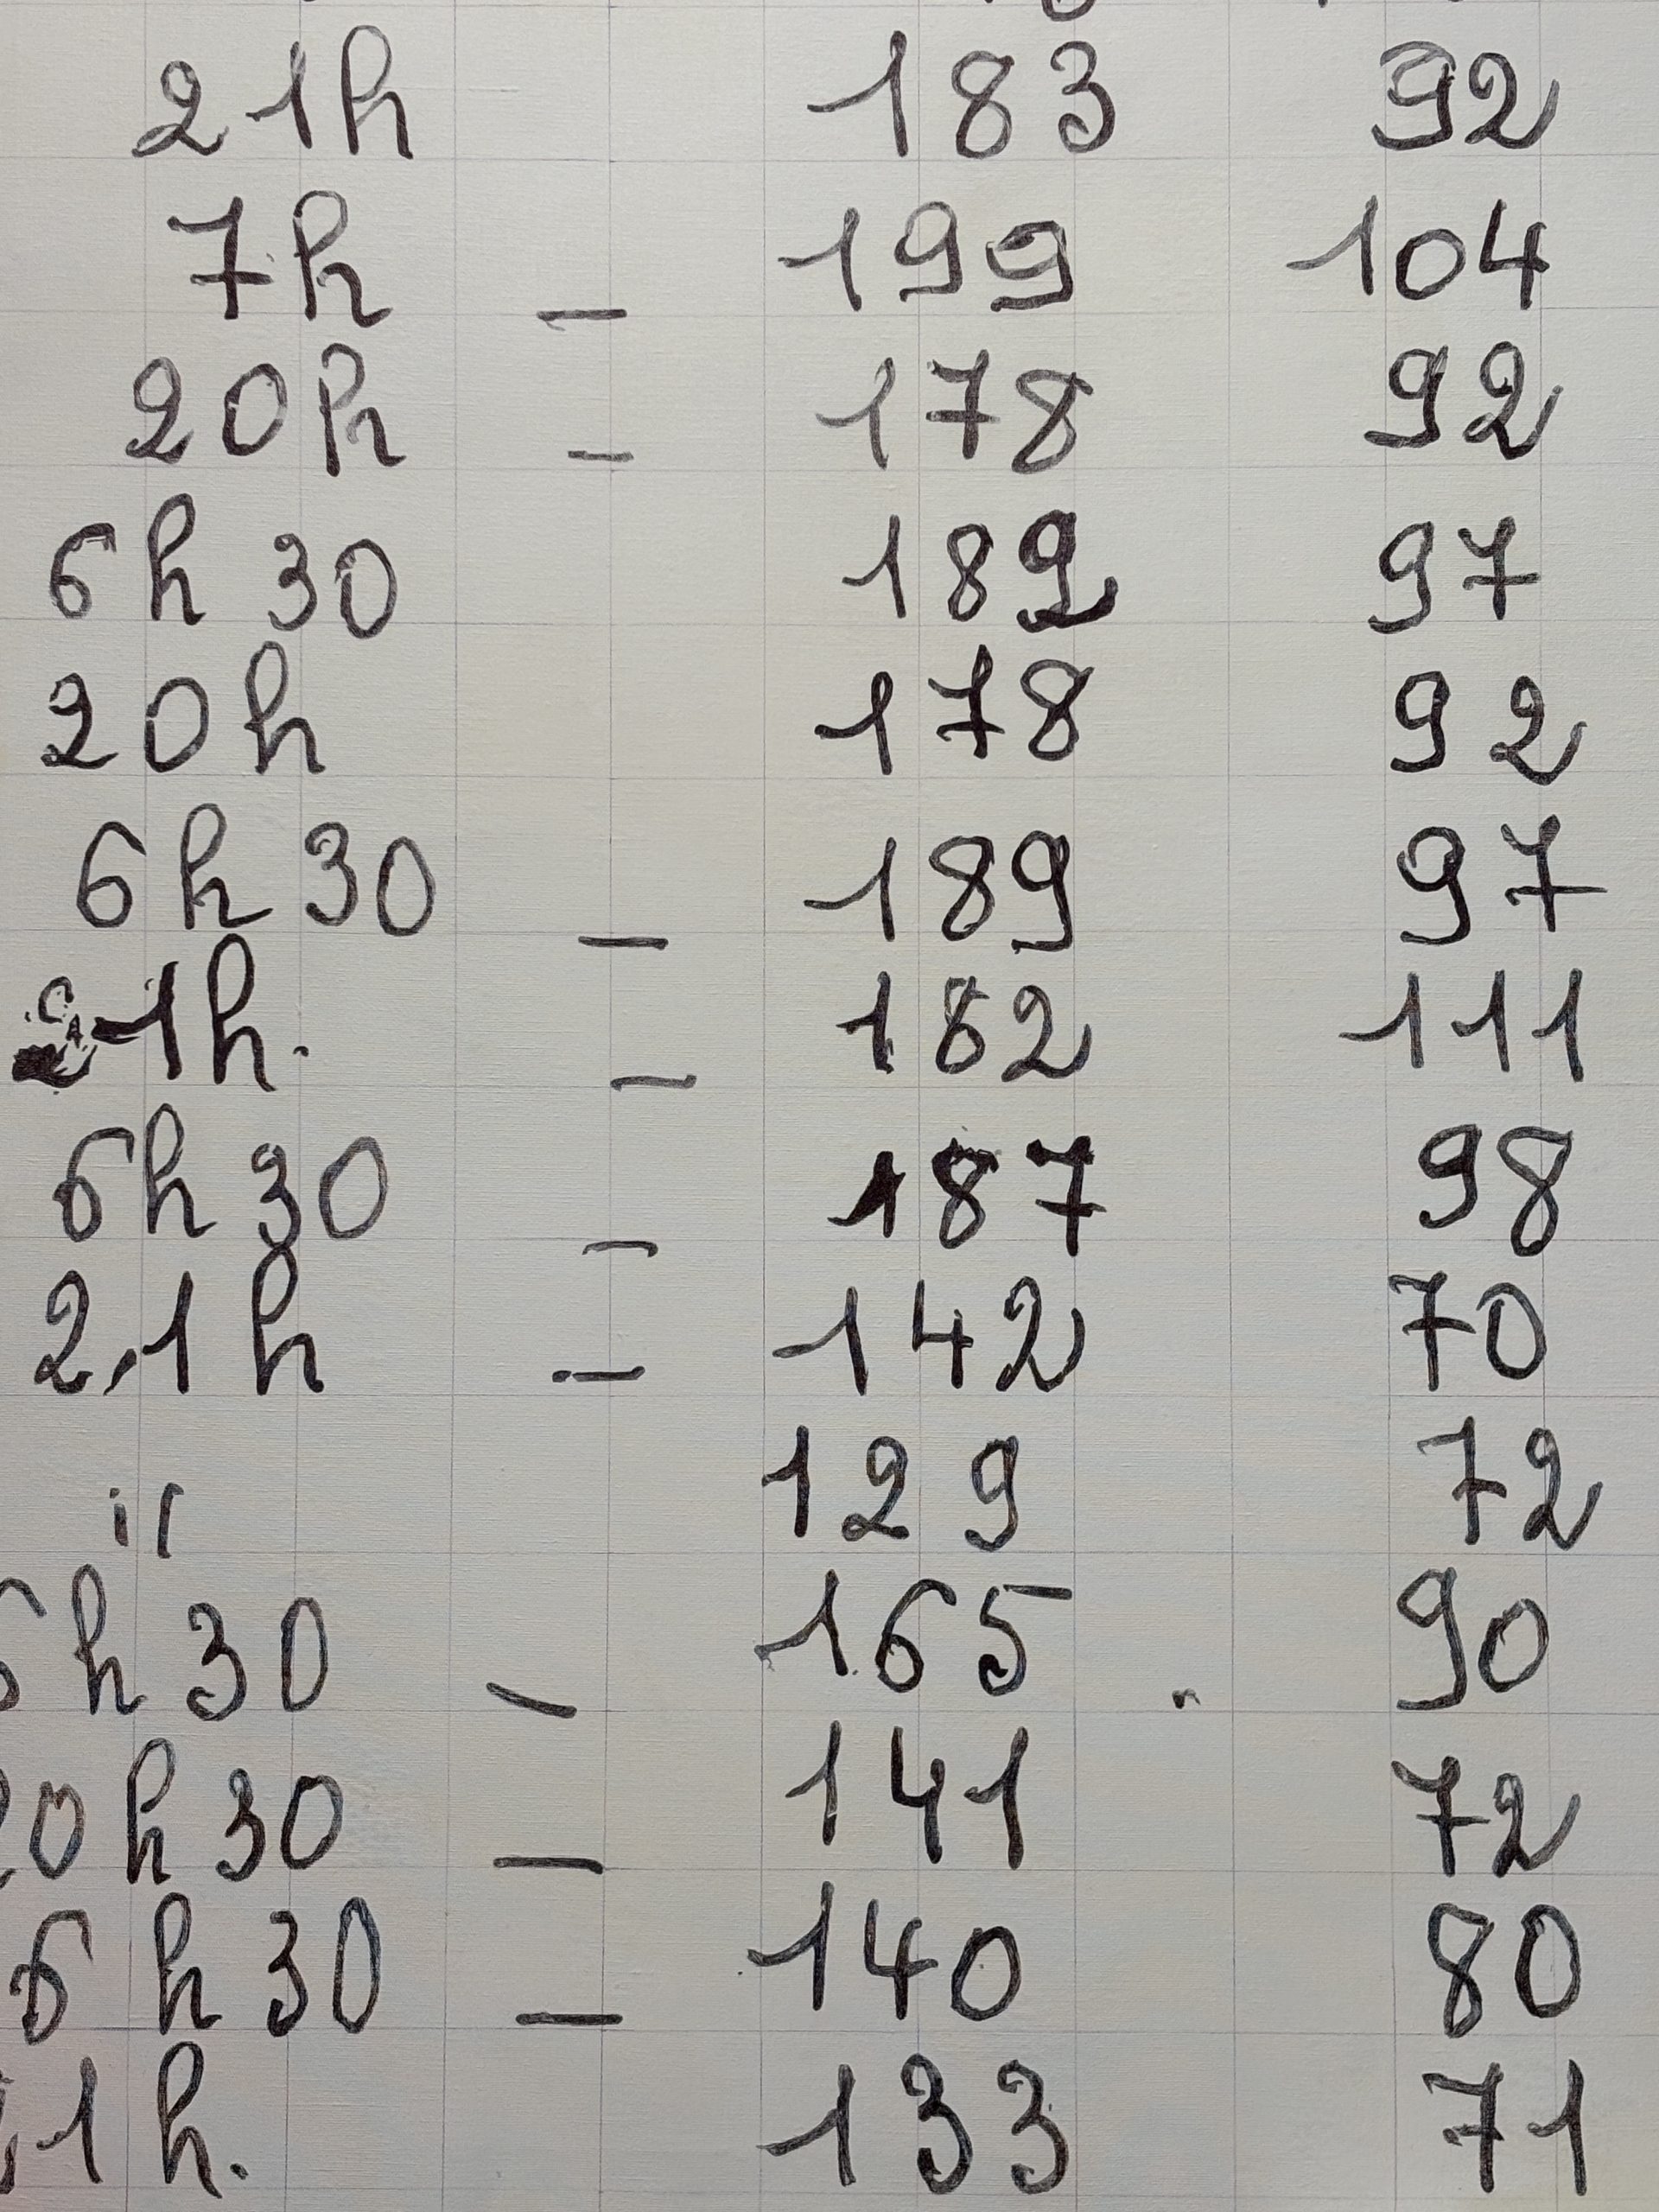 21h 183 92
7h _ 199 104
20h _ 178 92
6h 30 189 97
20h 178 92
6h 30 _ 189 97
21h. _ 182 111
6h 30 _ 187 98
21h _ 142 70
" 129 72
6h 30 _ 165 90
20h 30 _ 141 72
6h 30 _ 140 80
21h. 133 71